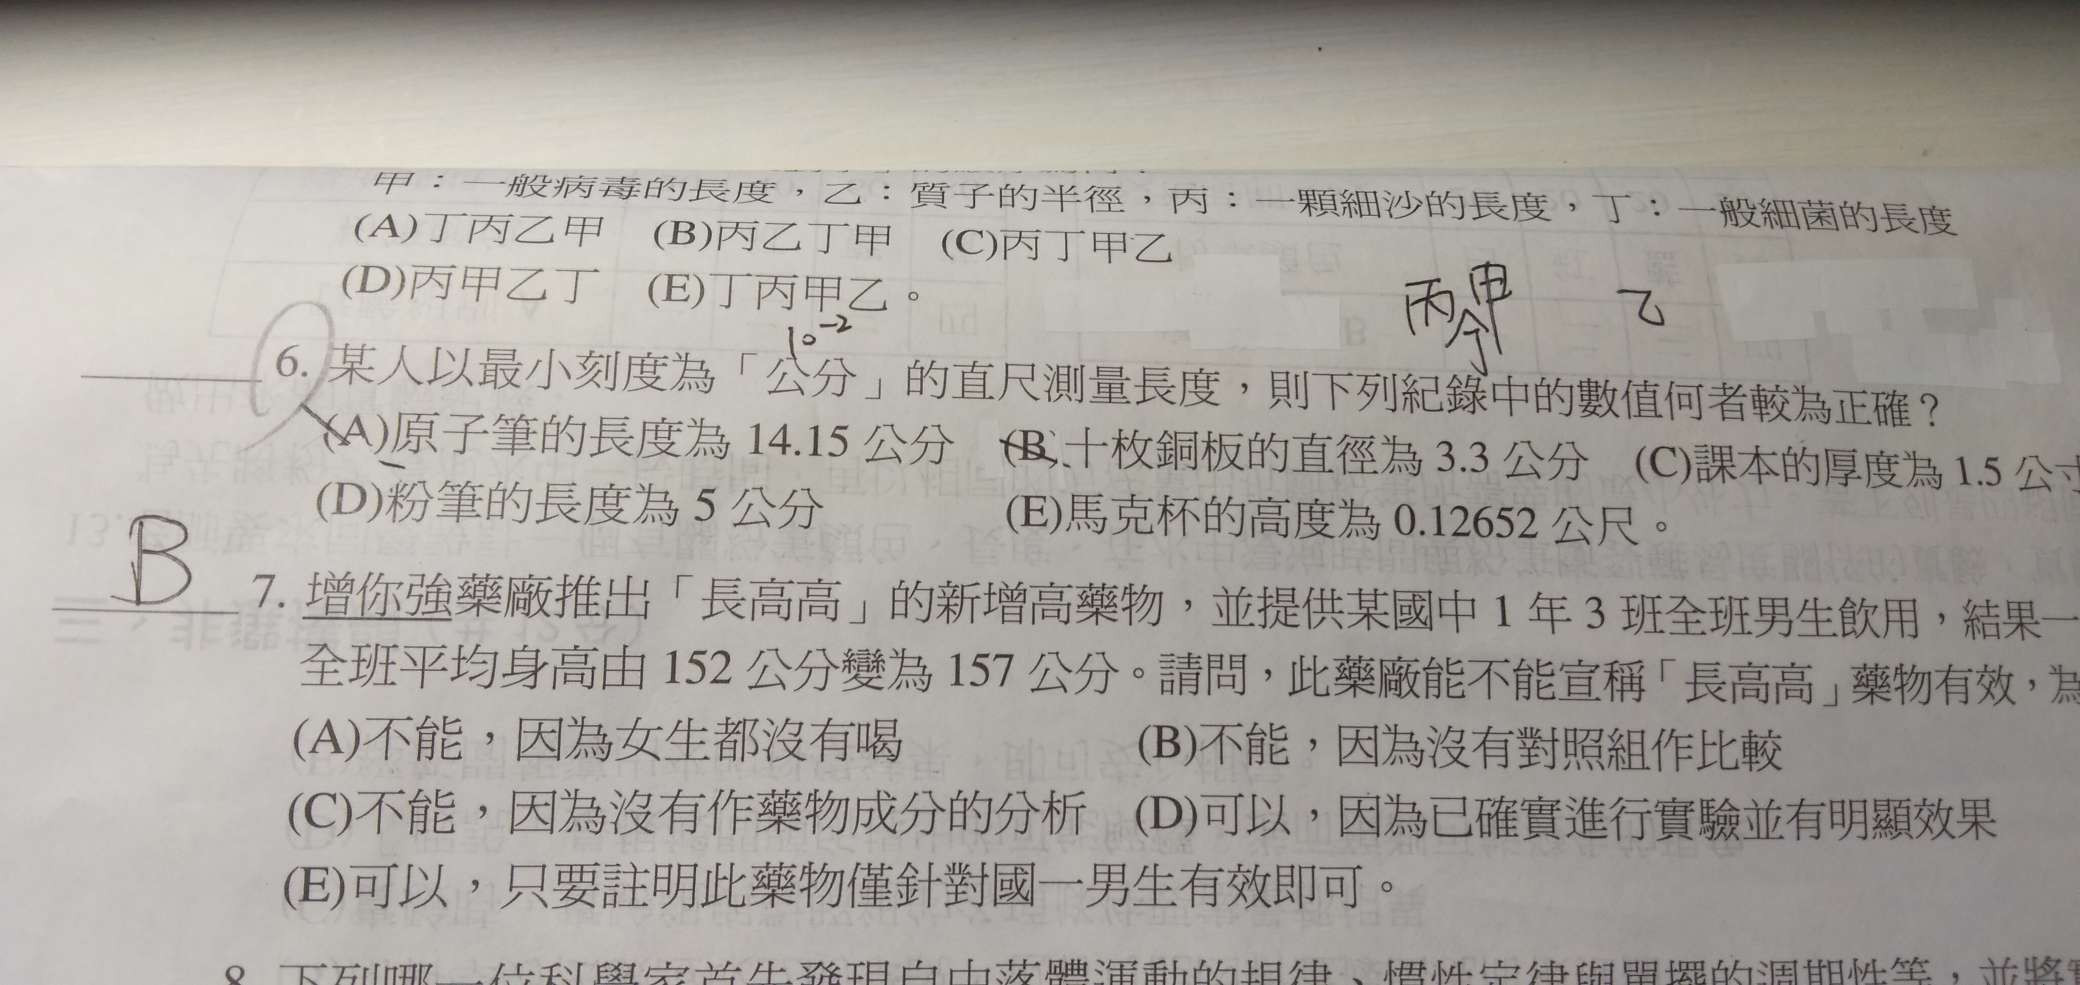 甲：一般病毒的長度，乙：質子的半徑，丙：一顆細沙的長度，丁：一般細菌的長度
(A)丁丙乙甲 (B)丙乙丁甲 (C)丙丁甲乙
(D)丙甲乙丁 (E)丁丙甲乙。
丙 丁 甲 乙
10⁻²
6. 某人以最小刻度為「公分」的直尺測量長度，則下列紀錄中的數值何者較為正確？
(A)原子筆的長度為 14.15 公分 (B)十枚銅板的直徑為 3.3 公分 (C)課本的厚度為 1.5 公寸
(D)粉筆的長度為 5 公分 (E)馬克杯的高度為 0.12652 公尺。
B
7. 增你強藥廠推出「長高高」的新增高藥物，並提供某國中 1 年 3 班全班男生飲用，結果一
全班平均身高由 152 公分變為 157 公分。請問，此藥廠能不能宣稱「長高高」藥物有效，為
(A)不能，因為女生都沒有喝 (B)不能，因為沒有對照組作比較
(C)不能，因為沒有作藥物成分的分析 (D)可以，因為已確實進行實驗並有明顯效果
(E)可以，只要註明此藥物僅針對國一男生有效即可。
8. 下列哪一位科學家首先發現自由落體運動的規律、慣性定律與單擺的週期性等，並將